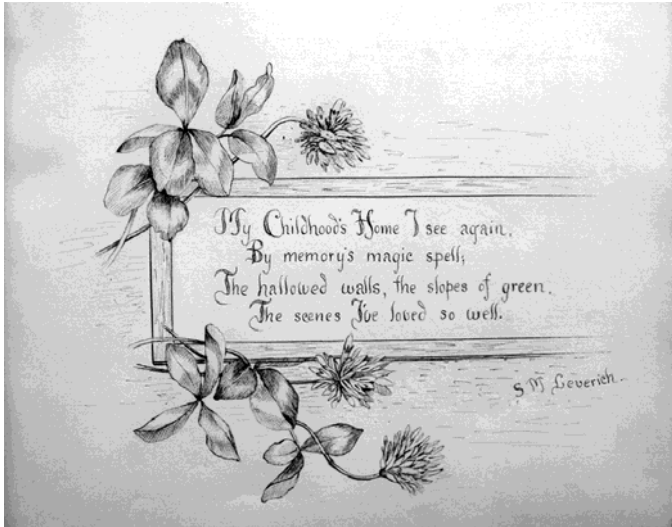 My Childhood's Home I see again,
By memory's magic spell;
The hallowed walls, the slopes of green,
The scenes I've loved so well.
S M Leverich